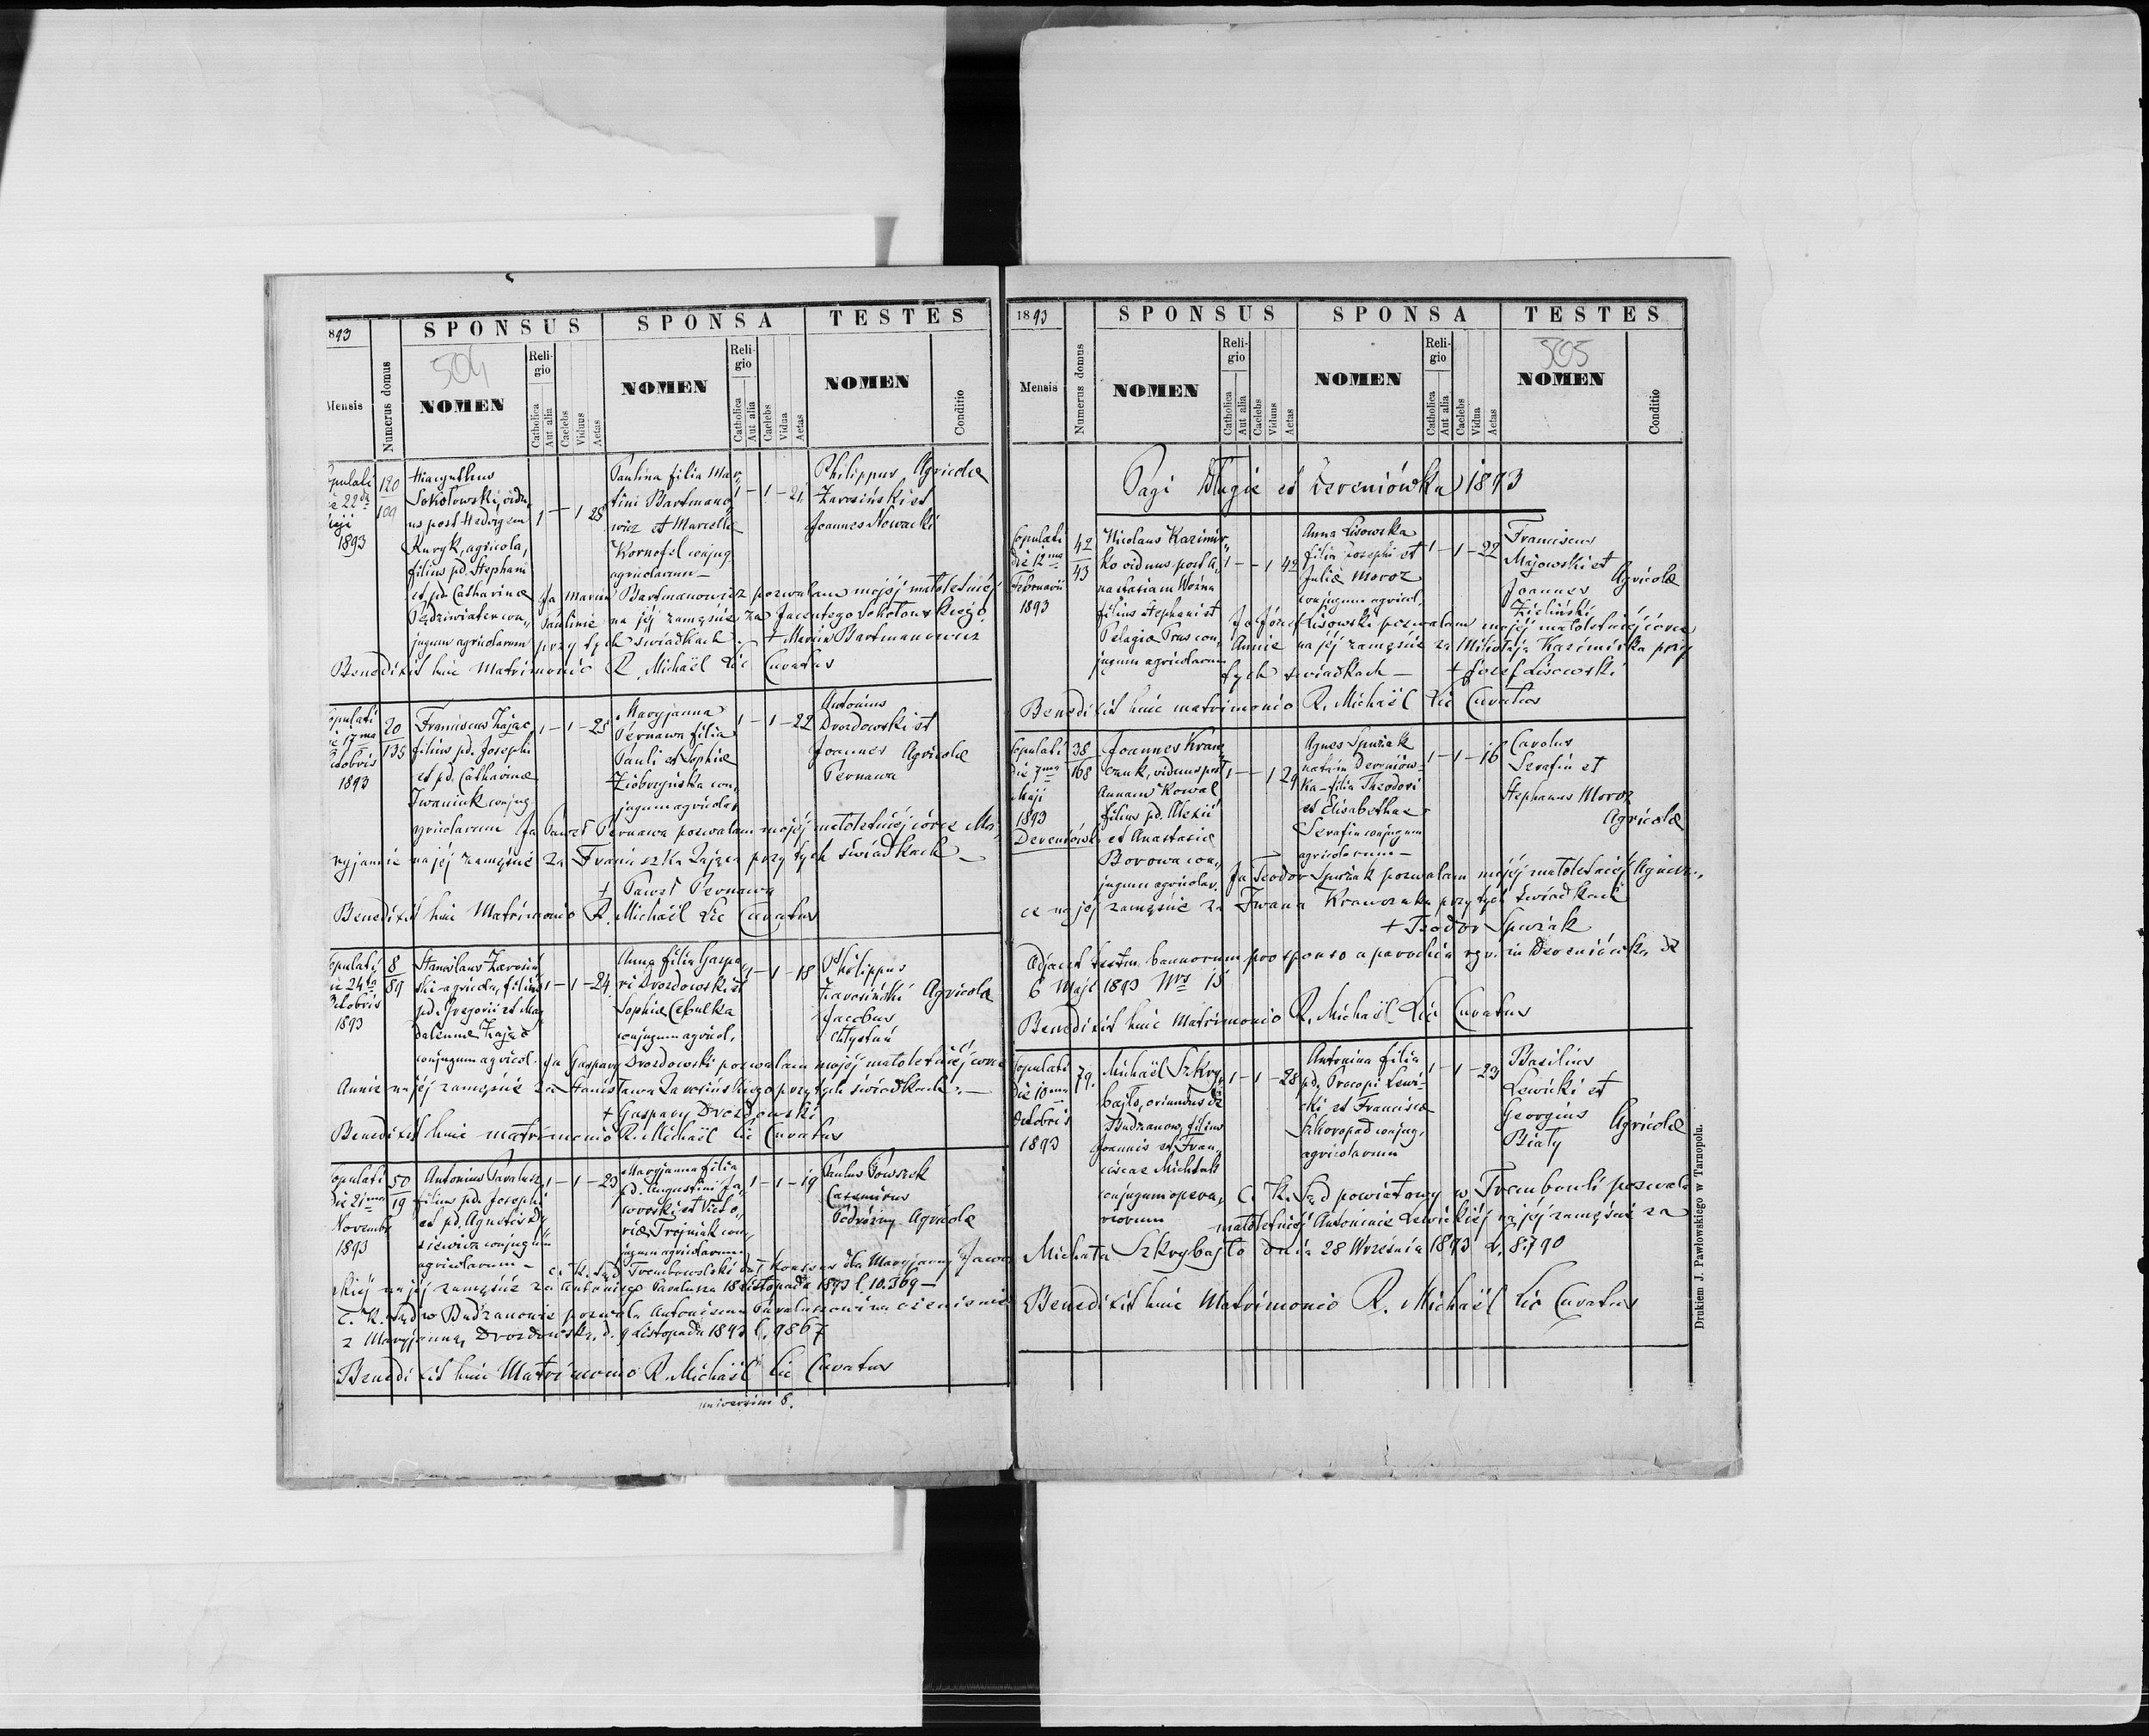 1893
SPONSUS
SPONSA
TESTES
504
Mensis
Numerus domus
NOMEN
Reli-
gio
Catholica
Aut alia
Caelebs
Viduus
Aetas
NOMEN
Reli-
gio
Catholica
Aut alia
Caelebs
Vidua
Aetas
NOMEN
Conditio
die 22da
Maji
1893
120
109
Hiacynthus
Sokołowski, vidu„
us post Hedvigem
Kuryk, agricola,
filius pd. Stephani
et pd. Catharinæ
Pędziwiater con„
jugum agricolarum
1 — 1 28
Paulina filia Mar„
tini Bartmano„
wicz et Marcellæ
Kornafel conjug.
agricolarum —
1 — 1 — 21
Philippus
Zarosiński et
Joannes Nowacki
Agricolæ
Ja Marcin Bartmanowicz pozwalam mojéj małoletniéj
Paulinie na jéj zamęście za Jacentego Sokołowskiego
przy tych świadkach — + Marcin Bartmanowicz
Benedixit huic Matrimonio R. Michaël Lic Curatus
Copulati
die 17ma
Octobris
1893
20
135
Franciscus Zając
filius pd. Josephi
et pd. Catharinæ
Iwaniuk conjug.
agricolarum
1 — 1 — 25
Maryjanna
Pernawa filia
Pauli et Sophiæ
Ziobrzyńska con„
jugum agricolar.
1 — 1 — 22
Antonius
Drozdowski et
Joannes
Pernawa
Agricolæ
Ja Paweł Pernawa pozwalam mojéj małoletniéj córce Ma„
ryjannie na jéj zamęście za Franciszka Zająca przy tych świadkach —
+ Paweł Pernawa
Benedixit huic Matrimonio R. Michaël Lic Curatus
Copulati
die 24ta
Octobris
1893
8
89
Stanislaus Zarosiń„
ski agricola, filius
pd. Gregorii et Mag„
dalenæ Zając
conjugum agricol.
1 — 1 — 24
Anna filia Gaspa„
ri Drozdowski et
Sophiæ Cebulka
conjugum agricol.
1 — 1 — 18
Philippus
Zarosiński
Jacobus
Chlystuń
Agricolæ
Ja Gaspary Drozdowski pozwalam mojéj małoletniéj córce
Annie na jéj zamęście za Stanisława Zarosińskiego przy tych świadkach. —
+ Gaspary Drozdowski
Benedixit huic matrimonio R. Michaël Lic Curatus
Copulati
die 21ma
Novembr
1893
50
19
Antonius Pavalusz
filius pd. Josephi
et pd. Agnetis
conjugum
agricolarum —
1 — 1 — 23
Maryjanna filia
pd. Augustini Ja„
worski et Victo„
riæ Trojniak con„
jugum agricolarum
1 — 1 — 19
Paulus
Casimirus
Podróżny
Agricolæ
C. K. Sąd Trembowelski dał konsens dla Maryjanny Jawor
skiéj na jéj zamęście za Antoniego Pavalusza 18 Listopada 1893 l. 10.369 —
C. K. Sąd w Budzanowie pozwala Antoniemu Pavaluszowi na ożenienie
z Maryjanną Drozdowską d. 9 Listopada 1893 l. 9867
Benedixit huic Matrimonio R. Michaël Lic Curatus
Universim 8.
1893
SPONSUS
SPONSA
TESTES
505
Mensis
Numerus domus
NOMEN
Reli-
gio
Catholica
Aut alia
Caelebs
Viduus
Aetas
NOMEN
Reli-
gio
Catholica
Aut alia
Caelebs
Vidua
Aetas
NOMEN
Conditio
Pagi Długie et Dereniówka 1893
Copulati
die 12ma
Februarii
1893
42
43
Nicolaus Kazimir„
ko viduus post A„
nastasiam Woźna
filius Stephani et
Pelagiæ Prus con„
jugum agricolarum
1 — — 1 42
Anna Lisowska
filia Josephi et
Juliæ Moroz
conjugum agricol.
1 — 1 — 22
Franciscus
Majowski et
Joannes
Zieliński
Agricolæ
Ja Józef Lisowski pozwalam mojéj małoletniéj córce
Annie na jéj zamęście za Mikołaja Kazimirka przy
tych świadkach — + Józef Lisowski
Benedixit huic matrimonio R. Michaël Lic Curatus
Copulati
die 7ma
Maji
1893
Dereniówk
38
168
Joannes Kraw
czuk, viduus post
Annam Kowal
filius pd. Alexii
et Anastasiæ
Borowa con„
jugum agricolar.
1 — — 1 29
Agnes Spuziak
nata in Dereniów„
ka — filia Theodori
et Elisabethae
Serafin conjugum
agricolarum —
1 — 1 — 16
Carolus
Serafin et
Stephanus Moroz
Agricolæ
Ja Teodor Spuziak pozwalam mojéj małoletniéj Agniesz„
ce na jéj zamęście za Iwana Krawczuka przy tych świadkach
+ Teodor Spuziak
Adjacet testm. bannorum pro sponso a parochia rgr. in Dereniówka dd
6 Maji 1893 Nrs 15
Benedixit huic Matrimonio R. Michaël Lic Curatus
Copulati
die 10ma
Octobris
1893
79.
Michaël Szkry„
bajło, oriundus de
Budzanow, filius
Joannis et Fran„
ciscae Michtals
conjugum opera„
riorum
1 — 1 — 28
Antonina filia
pd. Procopi Lewi„
cki et Franciscæ
Skoropad conjug.
agricolarum
1 — 1 — 23
Basilius
Lewicki et
Georgius
Biały
Agricolæ
C. K. Sąd powiatowy w Trembowli pozwala
małoletniéj Antoninie Lewickiéj na jéj zamęście za
Michała Szkrybajło dnia 28 Września 1893 L. 8790
Benedixit huic Matrimonio R. Michaël Lic Curatus
Drukiem J. Pawłowskiego w Tarnopolu.